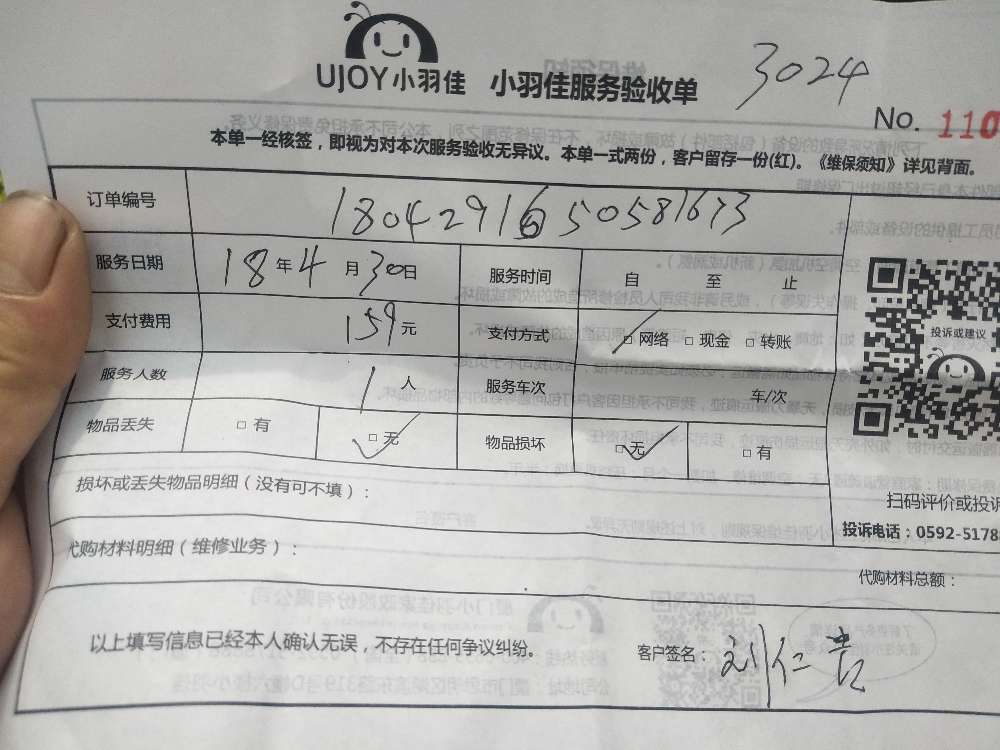 UJOY小羽佳 小羽佳服务验收单 3024
No. 110
本单一经核签，即视为对本次服务验收无异议。本单一式两份，客户留存一份(红)。《维保须知》详见背面。
订单编号 180429165058167
服务日期 18年4月30日 服务时间 自 至 止
支付费用 159元 支付方式 □ 网络 □ 现金 □ 转账
服务人数 1人 服务车次 车/次
物品丢失 □ 有 □ 无 物品损坏 □ 无 □ 有
投诉或建议
损坏或丢失物品明细（没有可不填）：
扫码评价或投诉
投诉电话：0592-5178
代购材料明细（维修业务）：
代购材料总额：
以上填写信息已经本人确认无误，不存在任何争议纠纷。
客户签名：刘仁贵